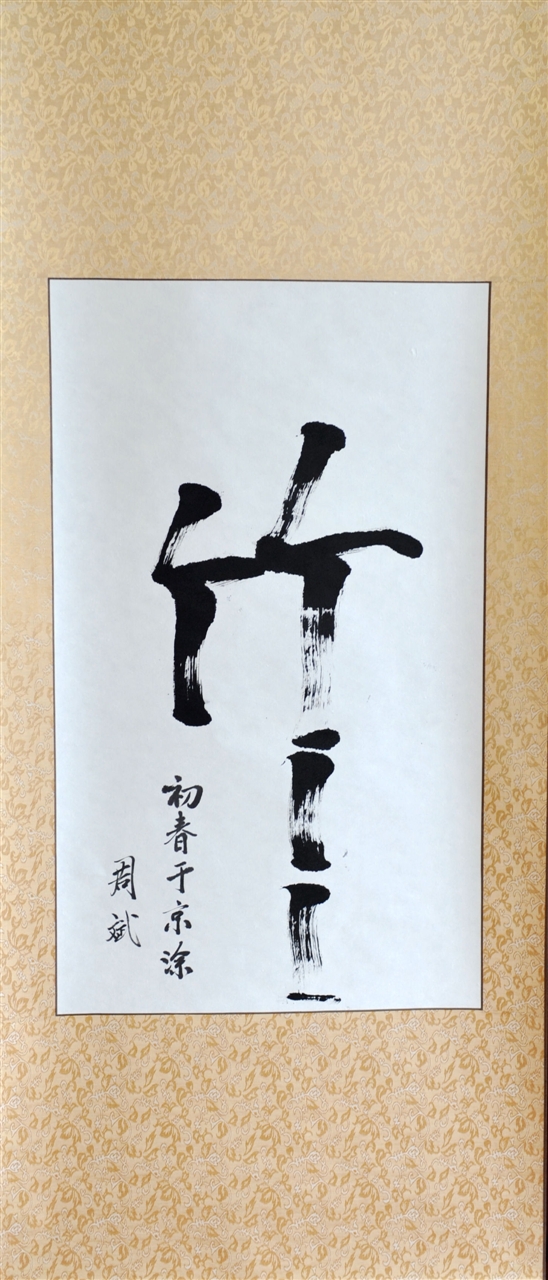 竹
初春于京涂
周斌